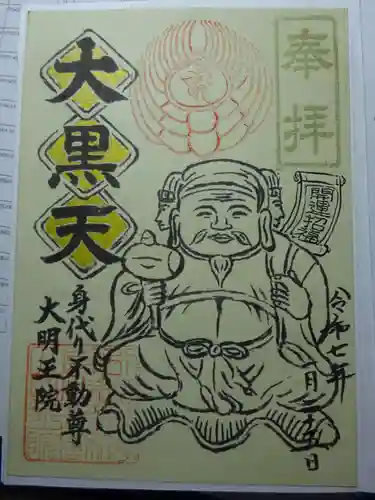 奉拝
開運招福
大黒天
身代り不動尊
大明王院
令和七年